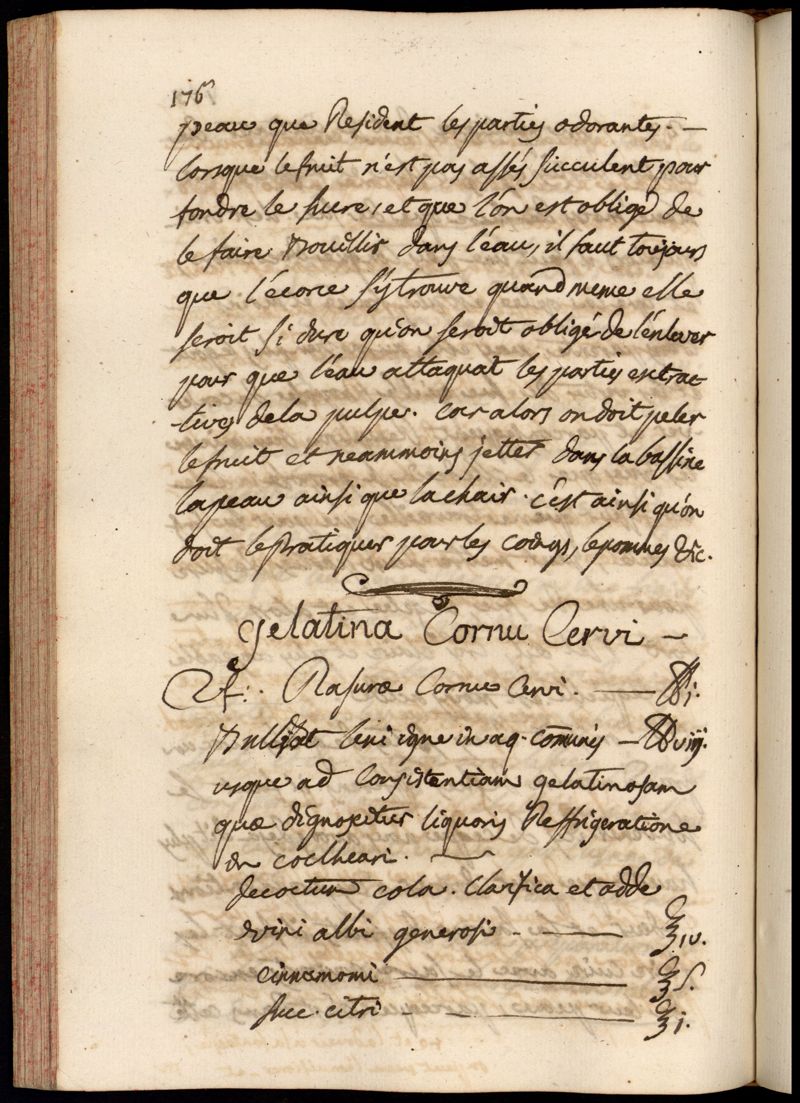 176
peau que Resident les parties odorantes. —
lorsque le fruit n'est pas assés succulent pour
fondre le sucre, et que l'on est obligé de
le faire Bouillir dans l'eau, il faut toujours
que l'écorce s'ytrouve quand meme elle
seroit si dure qu'on seroit obligé de l'enlever
pour que l'eau attaquat les parties extrac-
-tives de la pulpe. car alors on doit peler
le fruit et neammoins jetter dans la bassine
la peau ainsi que la chair. c'est ainsi qu'on
doit le Pratiquer pour les coings, le pommes &c.
gelatina Cornu Cervi —
℞: Rasuræ Cornu Cervi. — ℔j.
Bulliat leni igne in aq. comunis — ℔viij.
usque ad Consistentiam gelatinosam
quæ dignoscitur liquoris Reffrigeratione
in cochleari. —
decoctum cola. Clarifica et adde
vini albi generosi — ℥iv.
cinnamomi — ℥s.
succ. citri — ℥j.